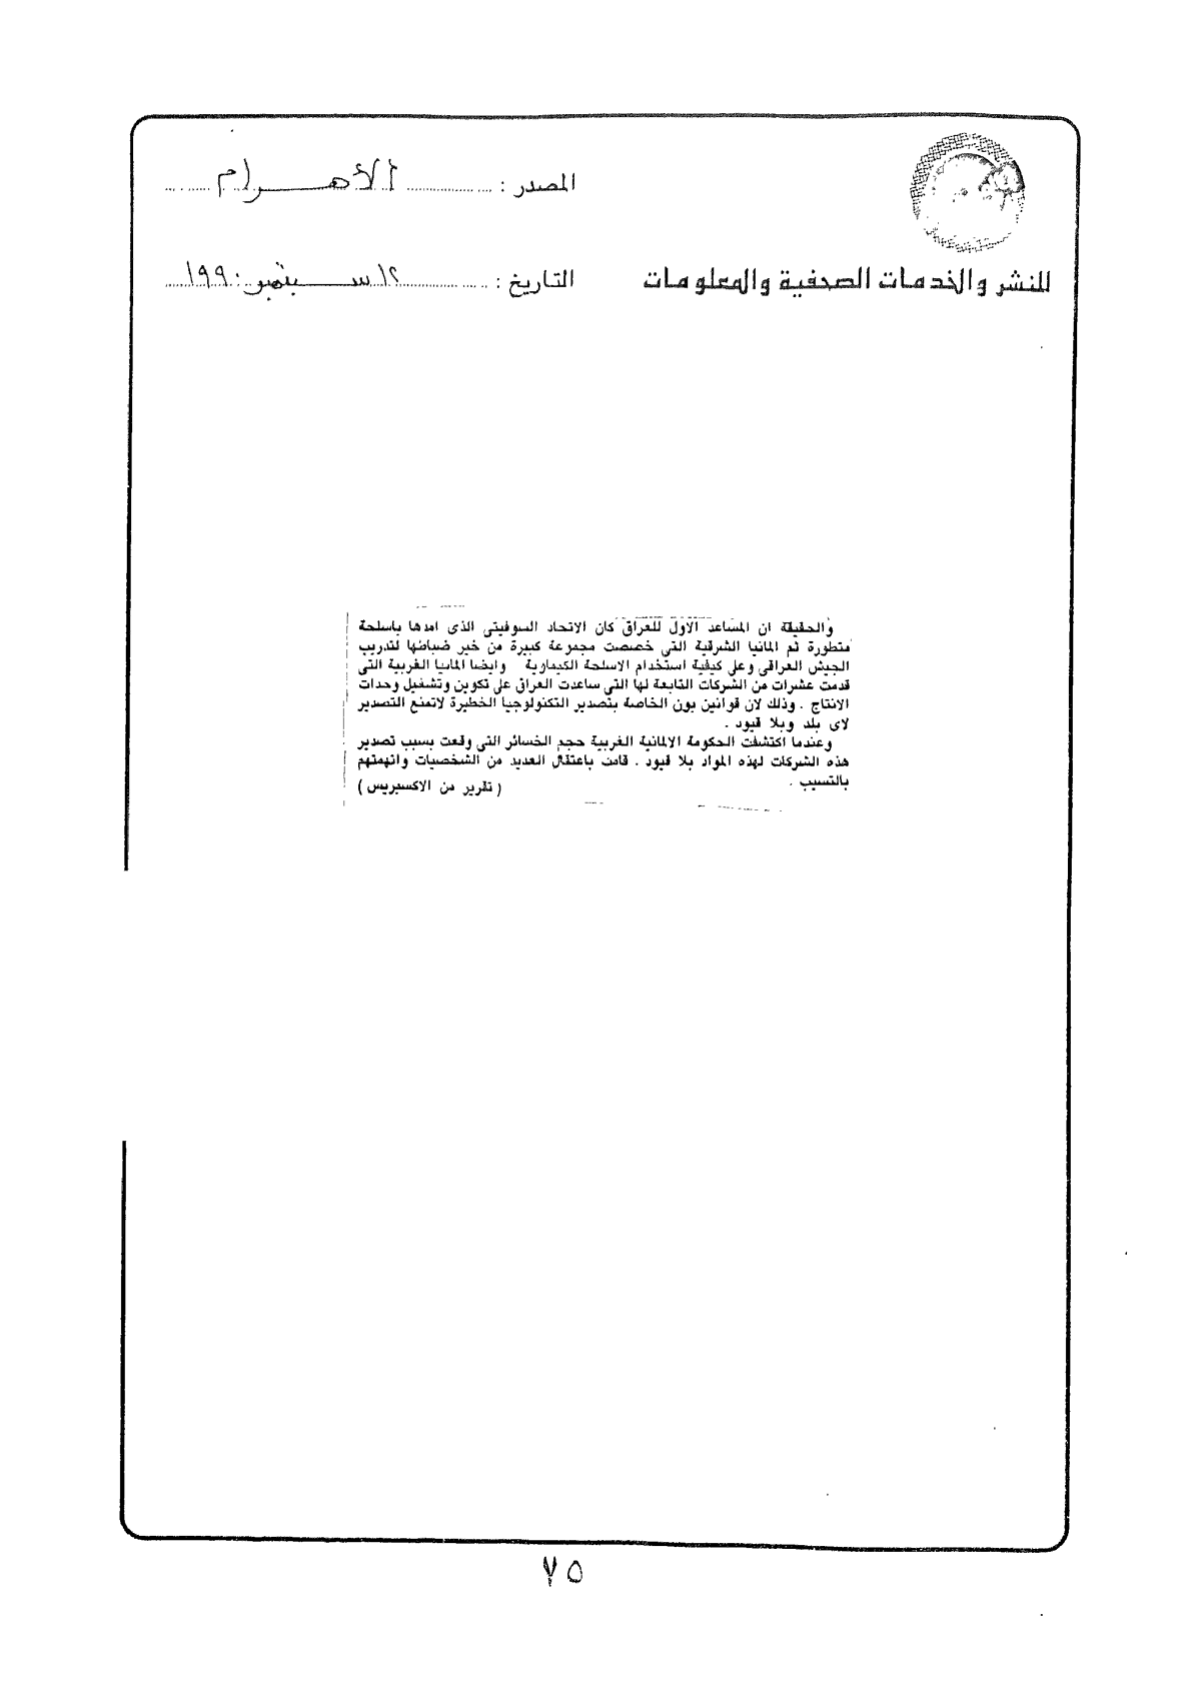 المصدر : الأهرام
للنشر والخدمات الصحفية والمعلومات
التاريخ : ١٢ سبتمبر ١٩٩٠
والحقيقة ان المساعد الاول للعراق كان الاتحاد السوفيتى الذى امدها باسلحة
متطورة ثم المانيا الشرقية التى خصصت مجموعة كبيرة من خير ضباطها لتدريب
الجيش العراقى وعلى كيفية استخدام الاسلحة الكيماوية وايضا المانيا الغربية التى
قدمت عشرات من الشركات التابعة لها التى ساعدت العراق على تكوين وتشغيل وحدات
الانتاج . وذلك لان قوانين بون الخاصة بتصدير التكنولوجيا الخطيرة لاتمنع التصدير
لاى بلد وبلا قيود .
وعندما اكتشفت الحكومة الالمانية الغربية حجم الخسائر التى وقعت بسبب تصدير
هذه الشركات لهذه المواد بلا قيود . قامت باعتقال العديد من الشخصيات واتهمتهم
بالتسيب .
( تقرير من الاكسبريس )
٧٥